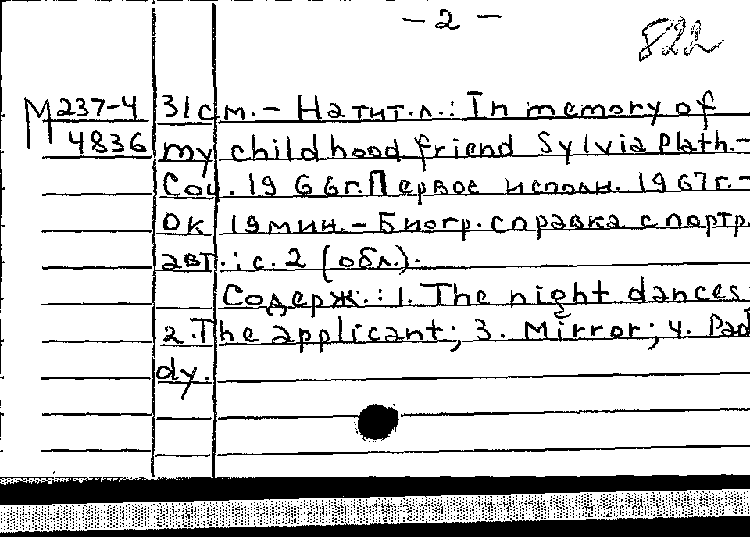 - 2 -
822
М 237-4 31 см. - На тит. л.: In memory of
4836 my childhood friend Sylvia Plath.-
Соч. 1966г. Первое исполн. 1967г.-
Ок 19 мин. - Биогр. справка с портр.
авт.: с. 2 (обл.).
Содерж.: 1. The night dances;
2. The applicant; 3. Mirror; 4. Dad
dy.